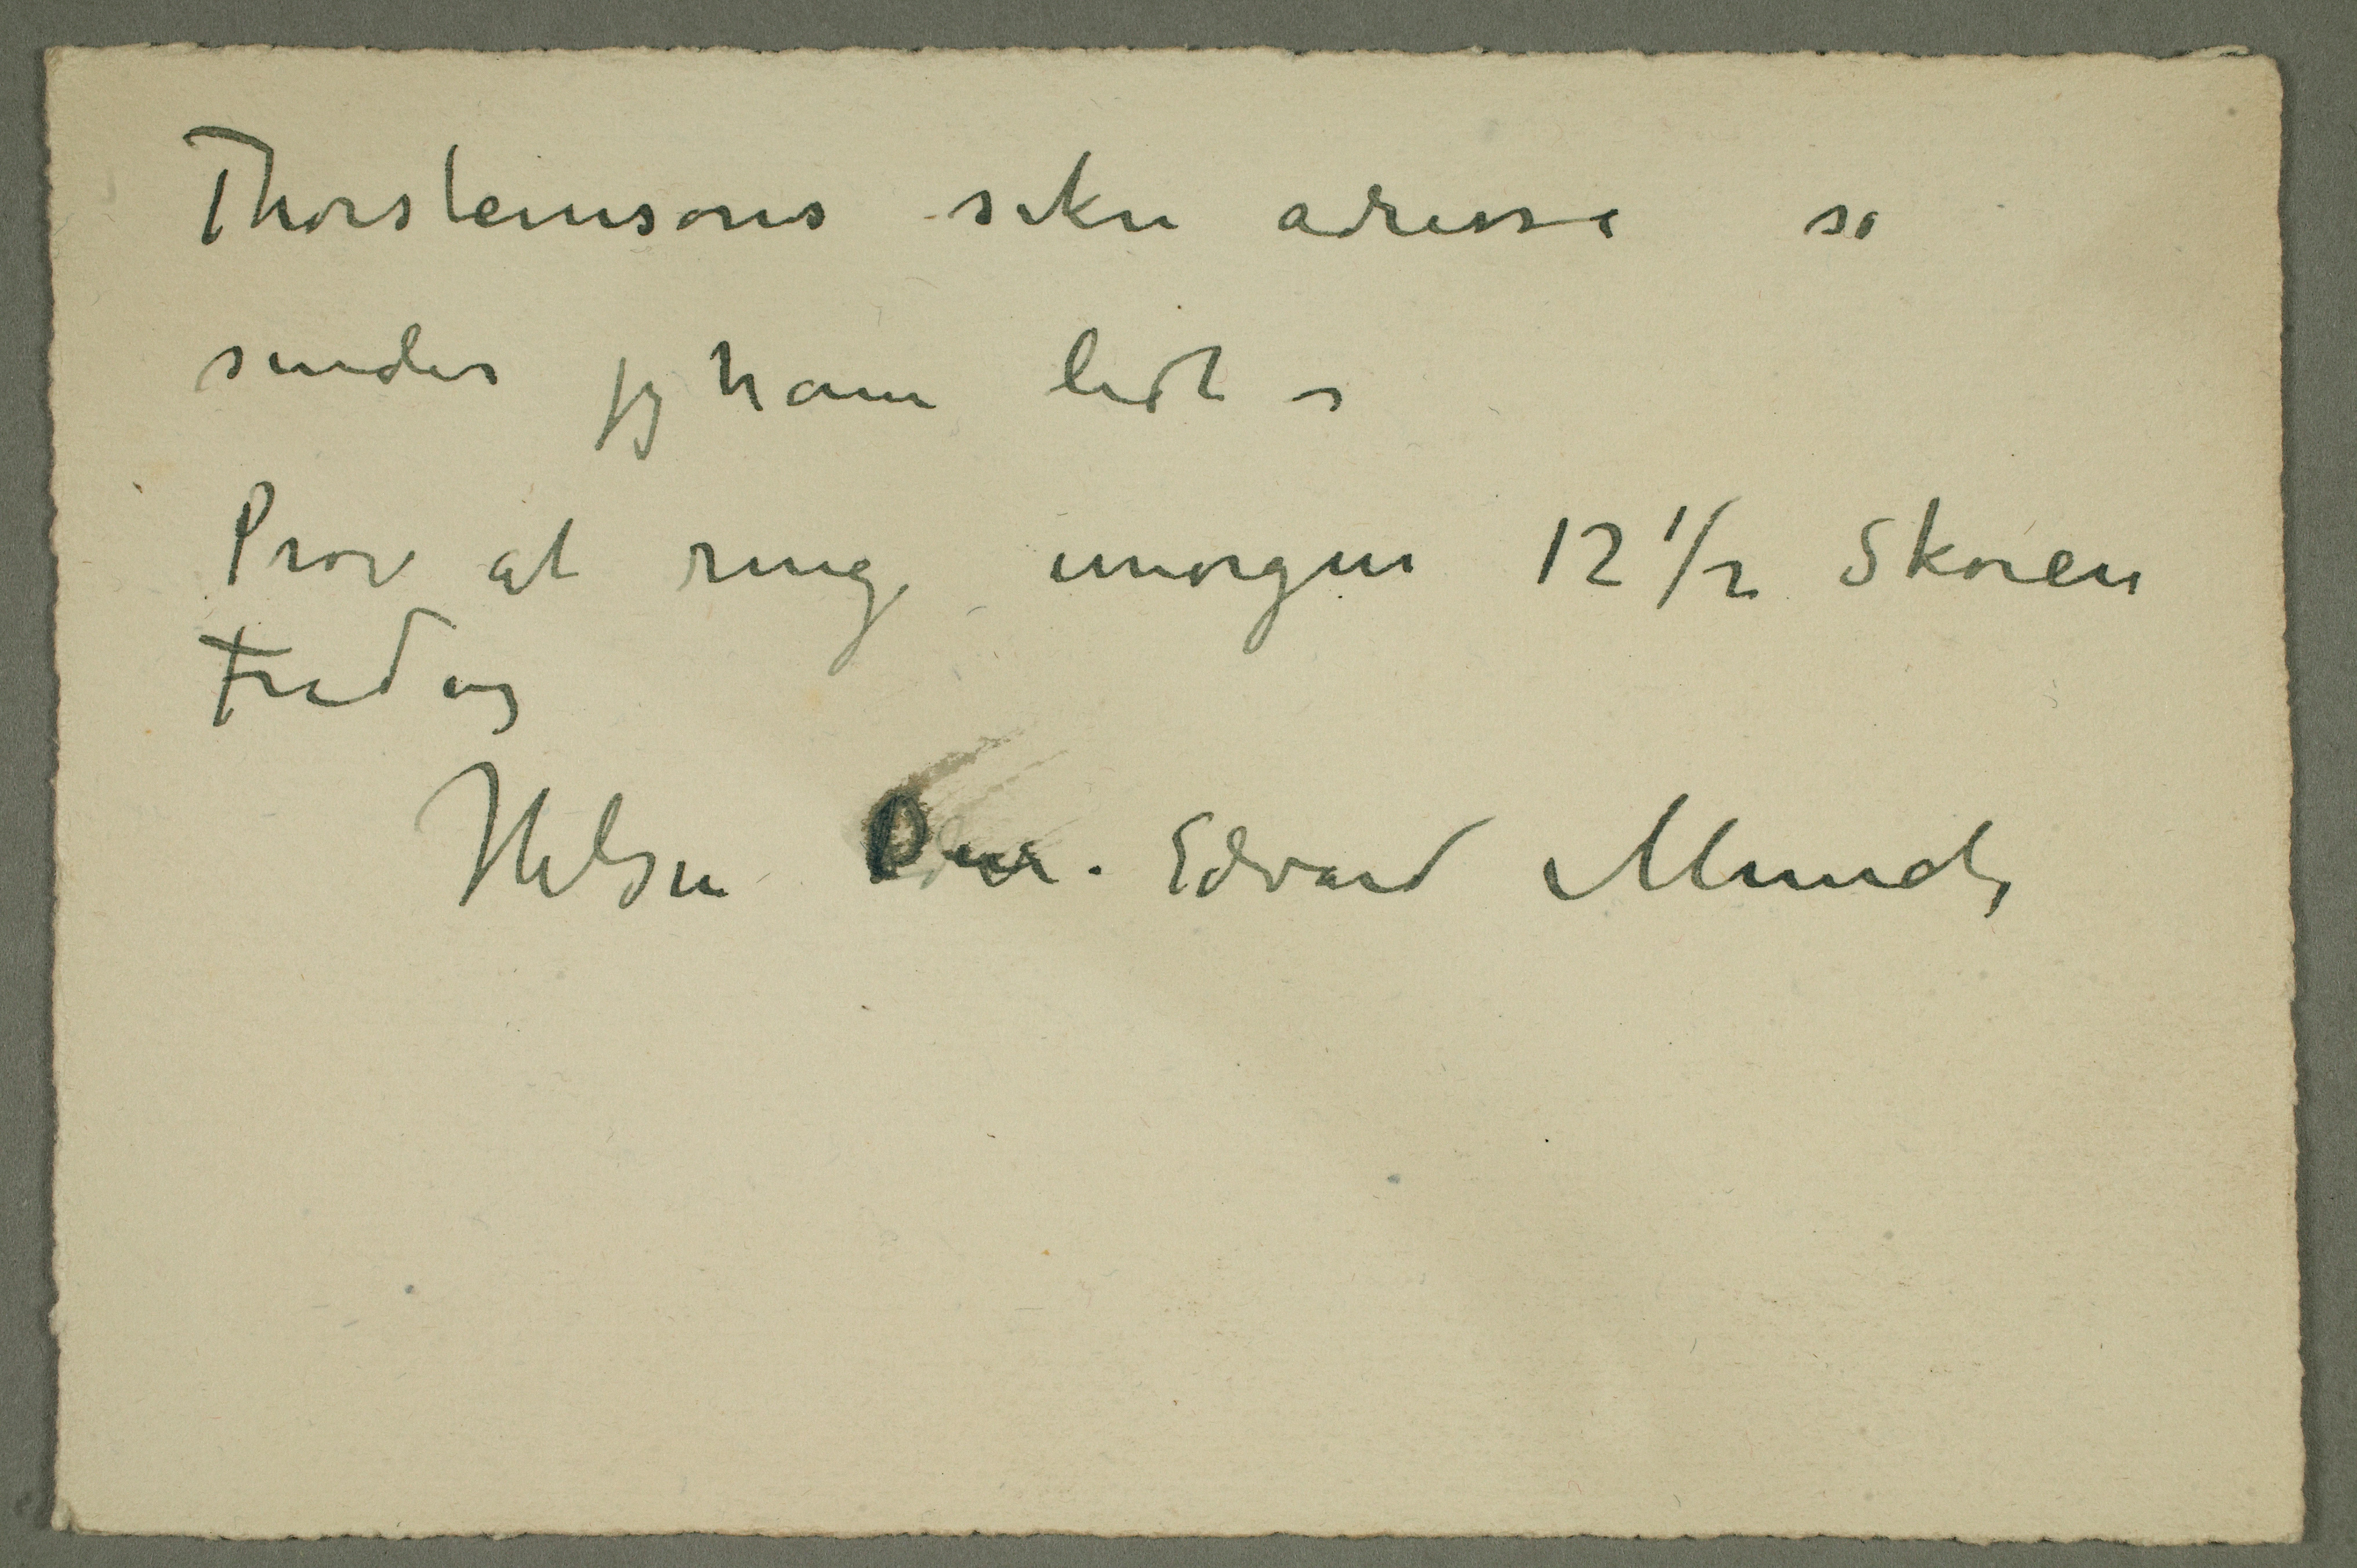 Thorsteinsons sikre adresse så
sender jeg ham lidt –
Prøv at ringe imorgen 12 1/2 Skøien
Fredag
Hilsen Deres Edvard Munch